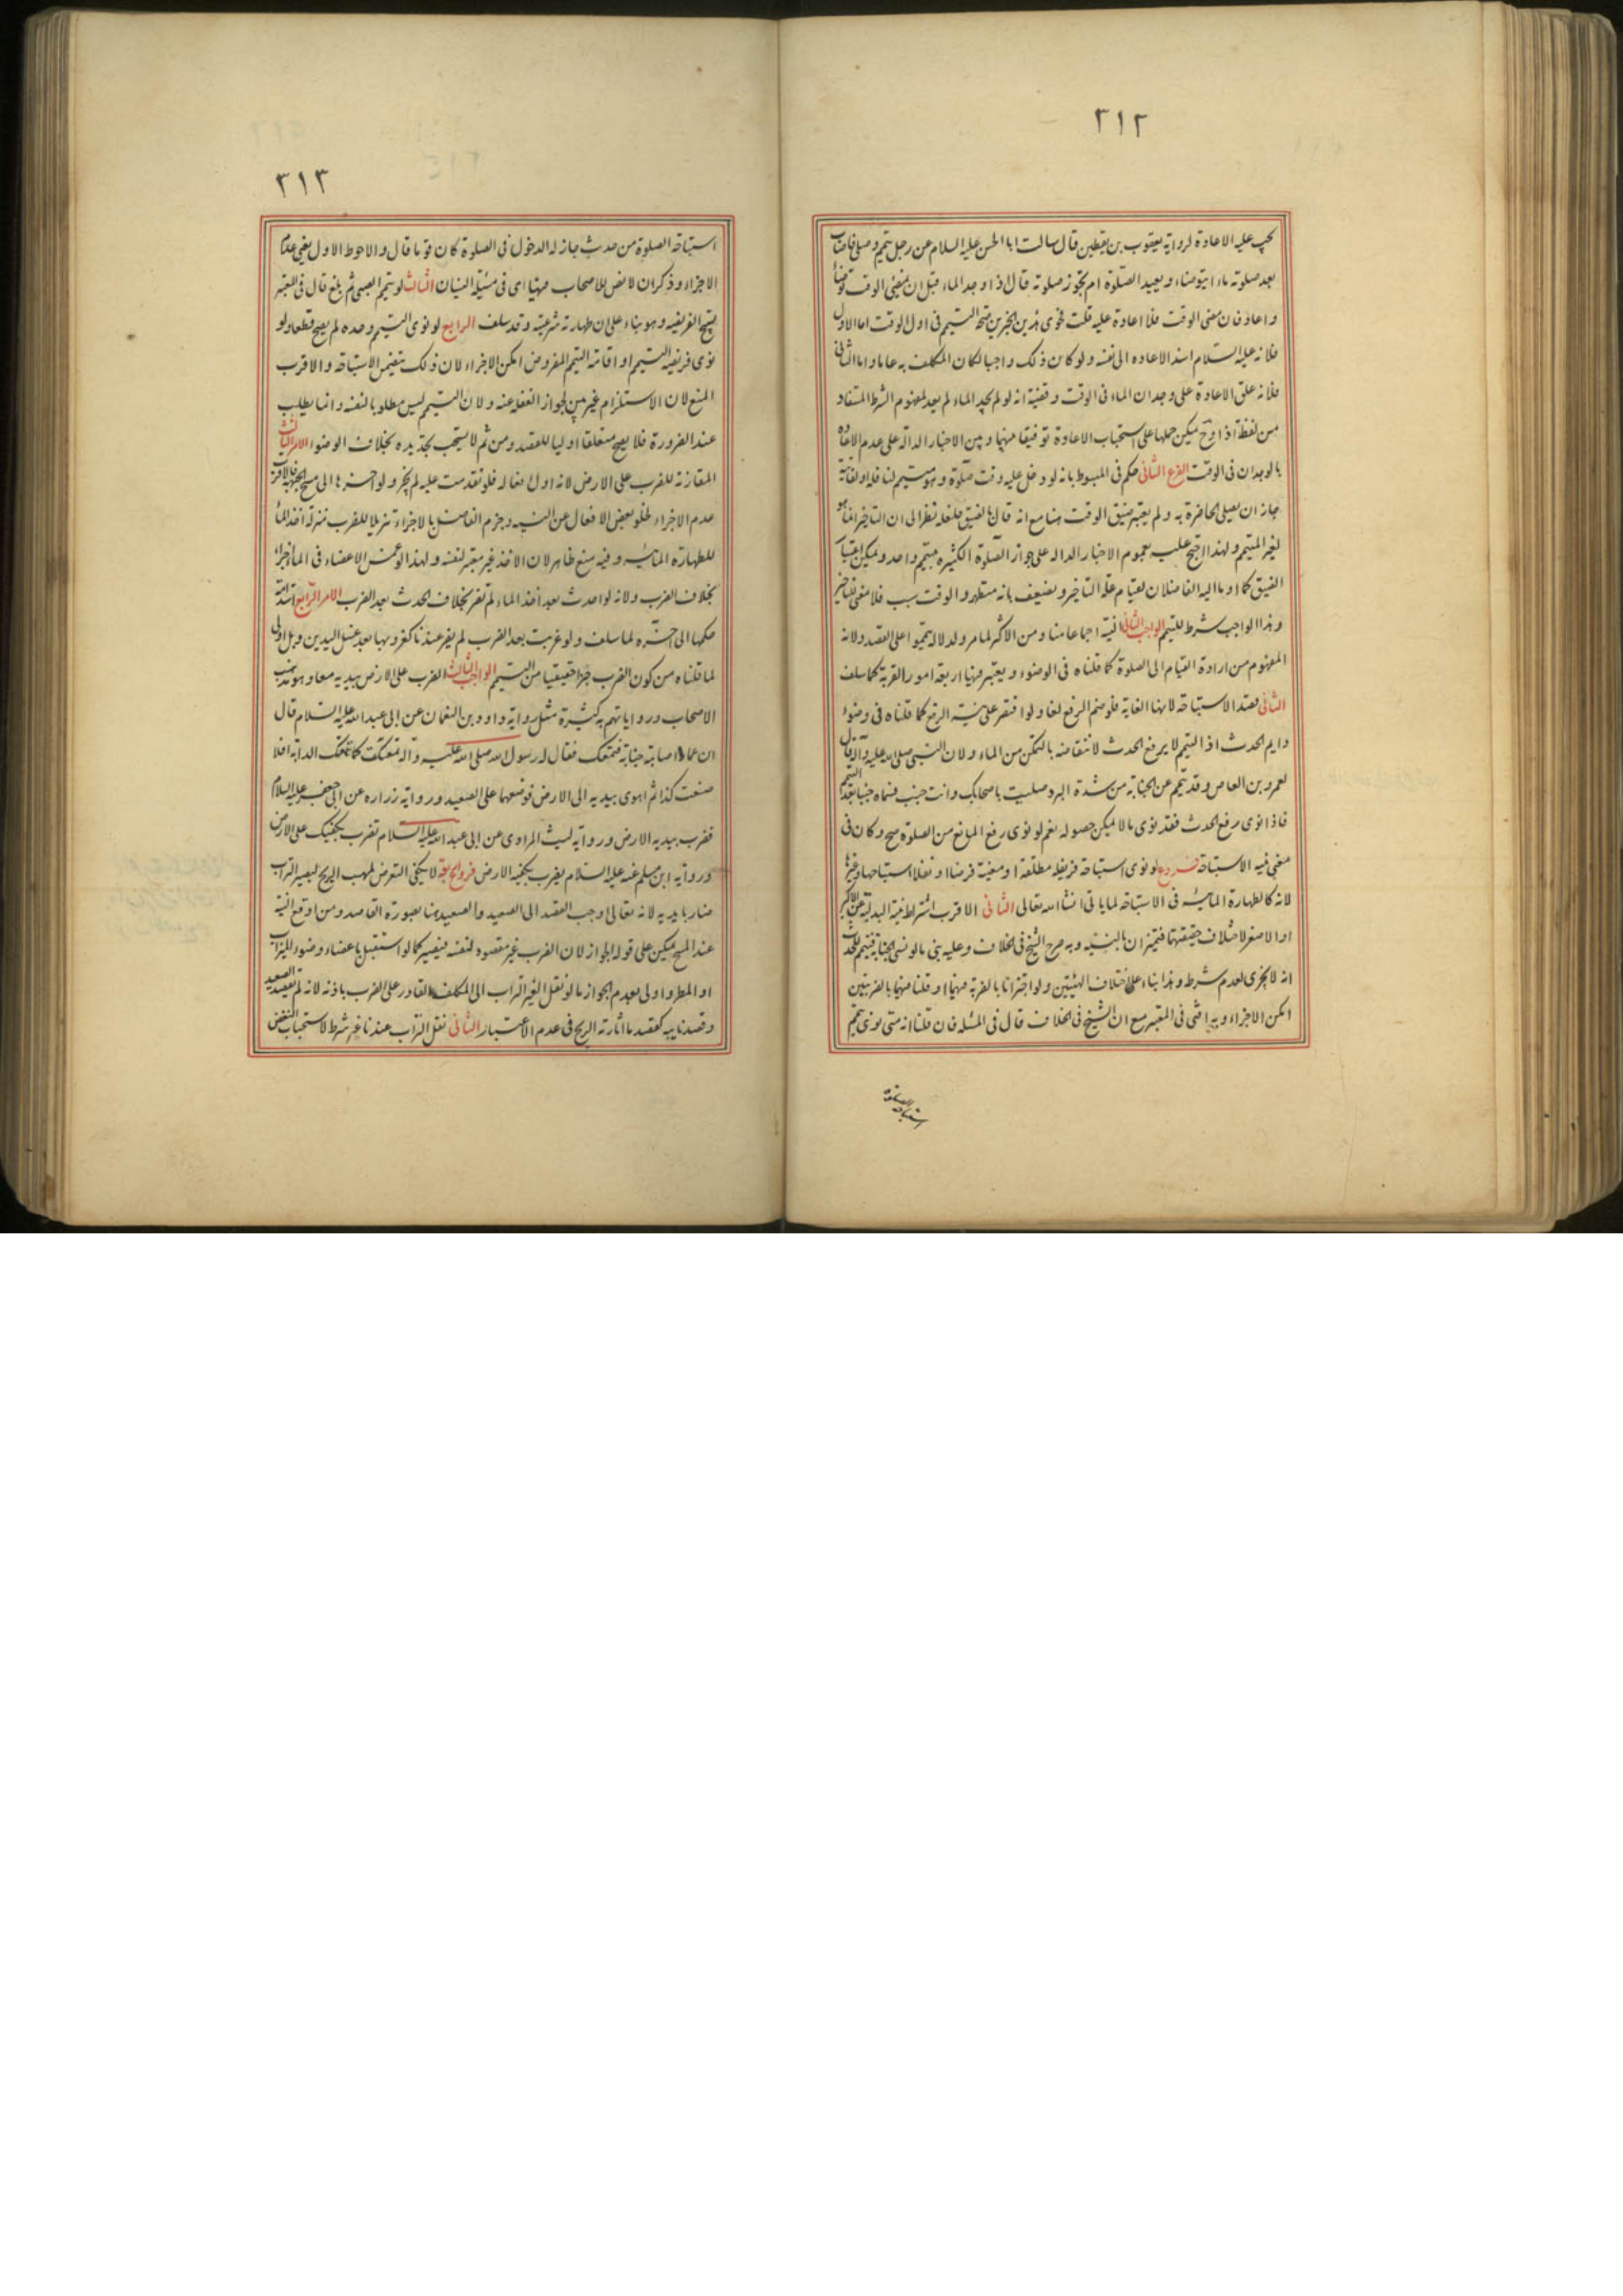 ٣١٢
تجب عليه الاعادة لرواية يعقوب بن يقطين قال سالت ابا الحسن عليه السلام عن رجل تيمم وصلى فاصاب
بعد صلوته ماء ايتوضاء ويعيد الصلوة ام تجوز صلوته قال اذا وجد الماء قبل ان يمضى الوقت توضأ
واعاد فان مضى الوقت فلا اعادة عليه قلت فحوى هذين الخبرين صحة التيمم فى اول الوقت اما الاول
فلانه عليه السلام اسند الاعاده الى نفسه ولو كان ذلك واجبا لكان المكلف به عاما واما الثانى
فلانه علق الاعادة على وجدان الماء فى الوقت وقضيته انه لو لم يجد الماء لم يعد لمفهوم الشرط المستفاد
من لفظة اذا وح يمكن حملها على استحباب الاعادة توفيقا بينها وبين الاخبار الدالة على عدم الاعاده
بالوجدان فى الوقت الفرع الثانى حكم فى المبسوط بانه لو دخل عليه وقت صلوة وهو متيمم لنافلة او لفائتة
جاز ان يصلى الحاضرة به ولم يعتبر ضيق الوقت هنا مع انه قال بالضيق فلعله نظرا الى ان التاخير انما هو
لغير المتيمم ولهذا احتج عليه بعموم الاخبار الدالة على جواز الصلوة الكثيرة بتيمم واحد ويمكن اعتبار
الضيق كما اوما اليه الفاضلان لقيام علة التاخير ويضعف بانه متطهر والوقت سبب فلا معنى للتاخير
وهذا الواجب شرط للتيمم الواجب الثانى النية اجماعا منا ومن الاكثر لما مر ولدلالة تيمموا على القصد ولانه
المفهوم من ارادة القيام الى الصلوة كما قلناه فى الوضوء ويعتبر فيها اربعة امور القربة كما سلف
الثانى قصد الاستباحة لانها الغاية فلو ضم الرفع لغا ولو اقتصر على نية الرفع كما قلناه فى وضوء
دايم الحدث اذ التيمم لا يرفع الحدث لانتقاضه بالتمكن من الماء ولان النبى صلى الله عليه وآله قال
لعمرو بن العاص وقد تيمم عن الجنابة من شدة البرد صليت باصحابك وانت جنب فسماه جنبا بعد التيمم
فاذا نوى رفع الحدث فقد نوى ما لا يمكن حصوله نعم لو نوى رفع المانع من الصلوة صح وكان فى
معنى نية الاستباحة فروع لو نوى استباحة فريضة مطلقة او معينة فرضا او نفلا استباحها وغيرها
لانه كالطهارة المائية فى الاستباحة لما ياتى انشاء الله تعالى الثانى الاقرب اشتراط نية البدلية عن الاكبر
او الاصغر لاختلاف حقيقتهما فتميزان بالنية وبه صرح الشيخ فى الخلاف وعليه بنى ما لو نسى الجنابة فتيمم للحدث
انه لا يجزى لعدم شرطه وهذا بناء على اختلاف الهيئتين ولو اجتزانا بالضربة فيهما او قلنا فيهما بالضربتين
امكن الاجزاء وبه افتى فى المعتبر مع ان الشيخ فى الخلاف قال فى المسئلة فان قلنا انه متى نوى بتيممه
استباحة الصلوة
٣١٣
استباحة الصلوة من حدث جاز له الدخول فى الصلوة كان قويا قال والاحوط الاول يعنى عدم
الاجزاء وذكر ان لا نص للاصحاب فيها اى فى مسئلة النسيان الثالث لو تيمم الصبى ثم بلغ قال فى المعتبر
يستبيح الفريضة وهو بناء على ان طهارته شرعية وقد سلف الرابع لو نوى التيمم وحده لم يصح قطعا ولو
نوى فريضة التيمم او اقامة التيمم المفروض امكن الاجزاء لان ذلك يتضمن الاستباحة والاقرب
المنع لان الاستلزام غير بين لجواز الغفلة عنه ولان التيمم ليس مطلوبا لنفسه وانما يطلب
عند الضرورة فلا يصح متعلقا اوليا للقصد ومن ثم لا يستحب تجديده بخلاف الوضوء الامر الثالث
المقارنة للضرب على الارض لانه اول افعاله فلو تقدمت عليه لم يجز ولو اخرها الى مسح الجبهة فالاقرب
عدم الاجزاء لخلو بعض الافعال عن النية وجزم الفاضل بالاجزاء تنزيلا للضرب منزلة اخذ الماء
للطهارة المائية وفيه منع ظاهر لان الاخذ غير معتبر لنفسه ولهذا لو غمس الاعضاء فى الماء اجزاء
بخلاف الضرب ولانه لو احدث بعد اخذ الماء لم يضر بخلاف الحدث بعد الضرب الامر الرابع استدامة
حكمها الى اخره لما سلف ولو عزبت بعد الضرب لم يضر عندنا كعزوبها بعد غسل اليدين وبل اولى
لما قلناه من كون الضرب جزءا حقيقيا من التيمم الواجب الثالث الضرب على الارض بيديه معا وهو مذهب
الاصحاب ورواياتهم به كثيرة مثل رواية داود بن النعمان عن ابى عبد الله عليه السلام قال
ان عمارا اصابته جنابة فتمعك فقال له رسول الله صلى الله عليه وآله تمعكت كما تمعك الدابة افلا
صنعت كذا ثم اهوى بيديه الى الارض فوضعها على الصعيد ورواية زرارة عن ابى جعفر عليه السلام
فضرب بيديه الارض ورواية ليث المرادى عن ابى عبد الله عليه السلام تضرب بكفيك على الارض
ورواية ابن مسلم عنه عليه السلام يضرب بكفيه الارض فروع لا يكفى التعرض لمهب الريح ليصير التراب
ضاربا يديه لانه تعالى اوجب القصد الى الصعيد والصعيد هنا بصورة القاصد ومن اوقع النية
عند المسح يمكن على قوله الجواز لان الضرب غير مقصود لنفسه فيصير كما لو استقبل باعضاء وضوءه الميزاب
او المطر واولى بعدم الجواز ما لو نقل الغير التراب الى المكلف القادر على الضرب باذنه لانه لم يقصد الصعيد
وقصد نايبه كقصد ما اثارته الريح فى عدم الاعتبار الثانى نقل التراب عندنا غير شرط لاستحباب النفض